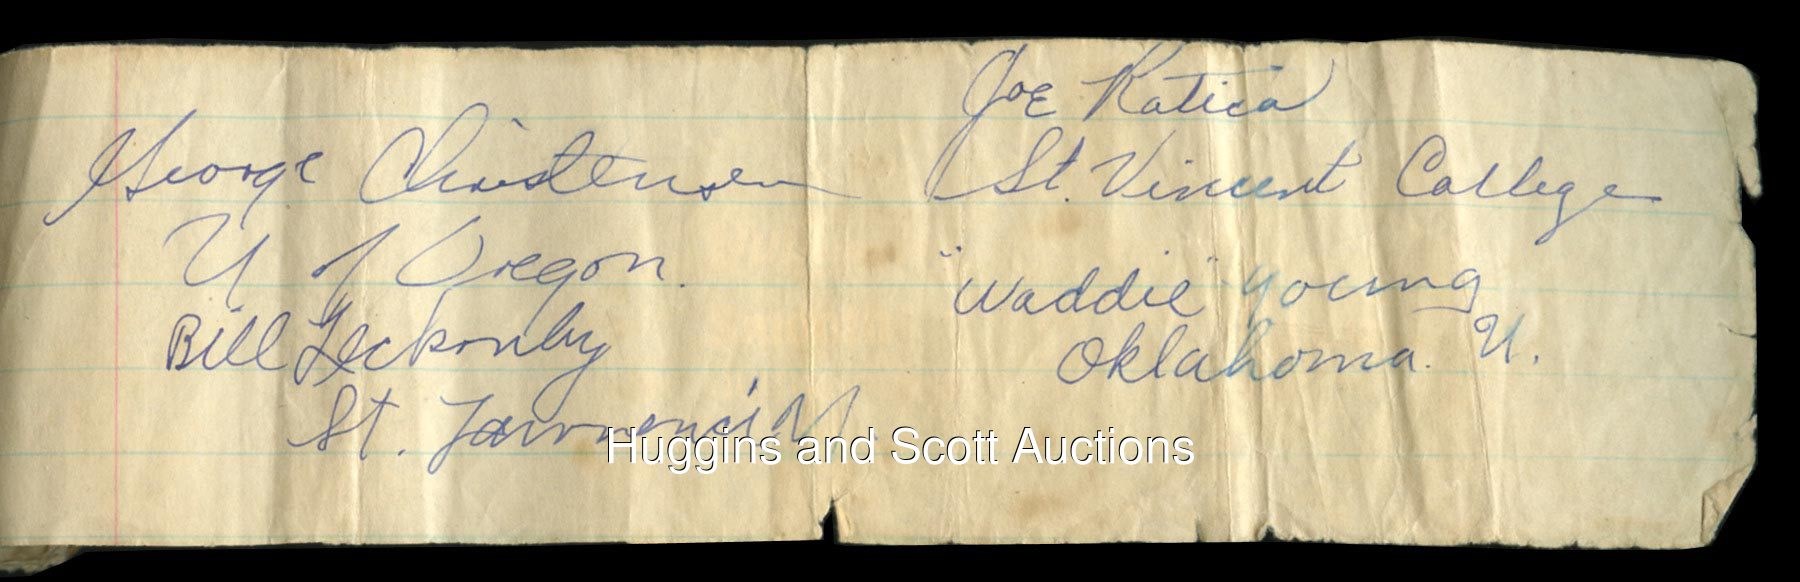 George Christensen
U of Oregon.
Bill Leckonby
St. Lawrence U
Joe Ratica
St. Vincent College
"Waddie" Young
Oklahoma. U.
Huggins and Scott Auctions